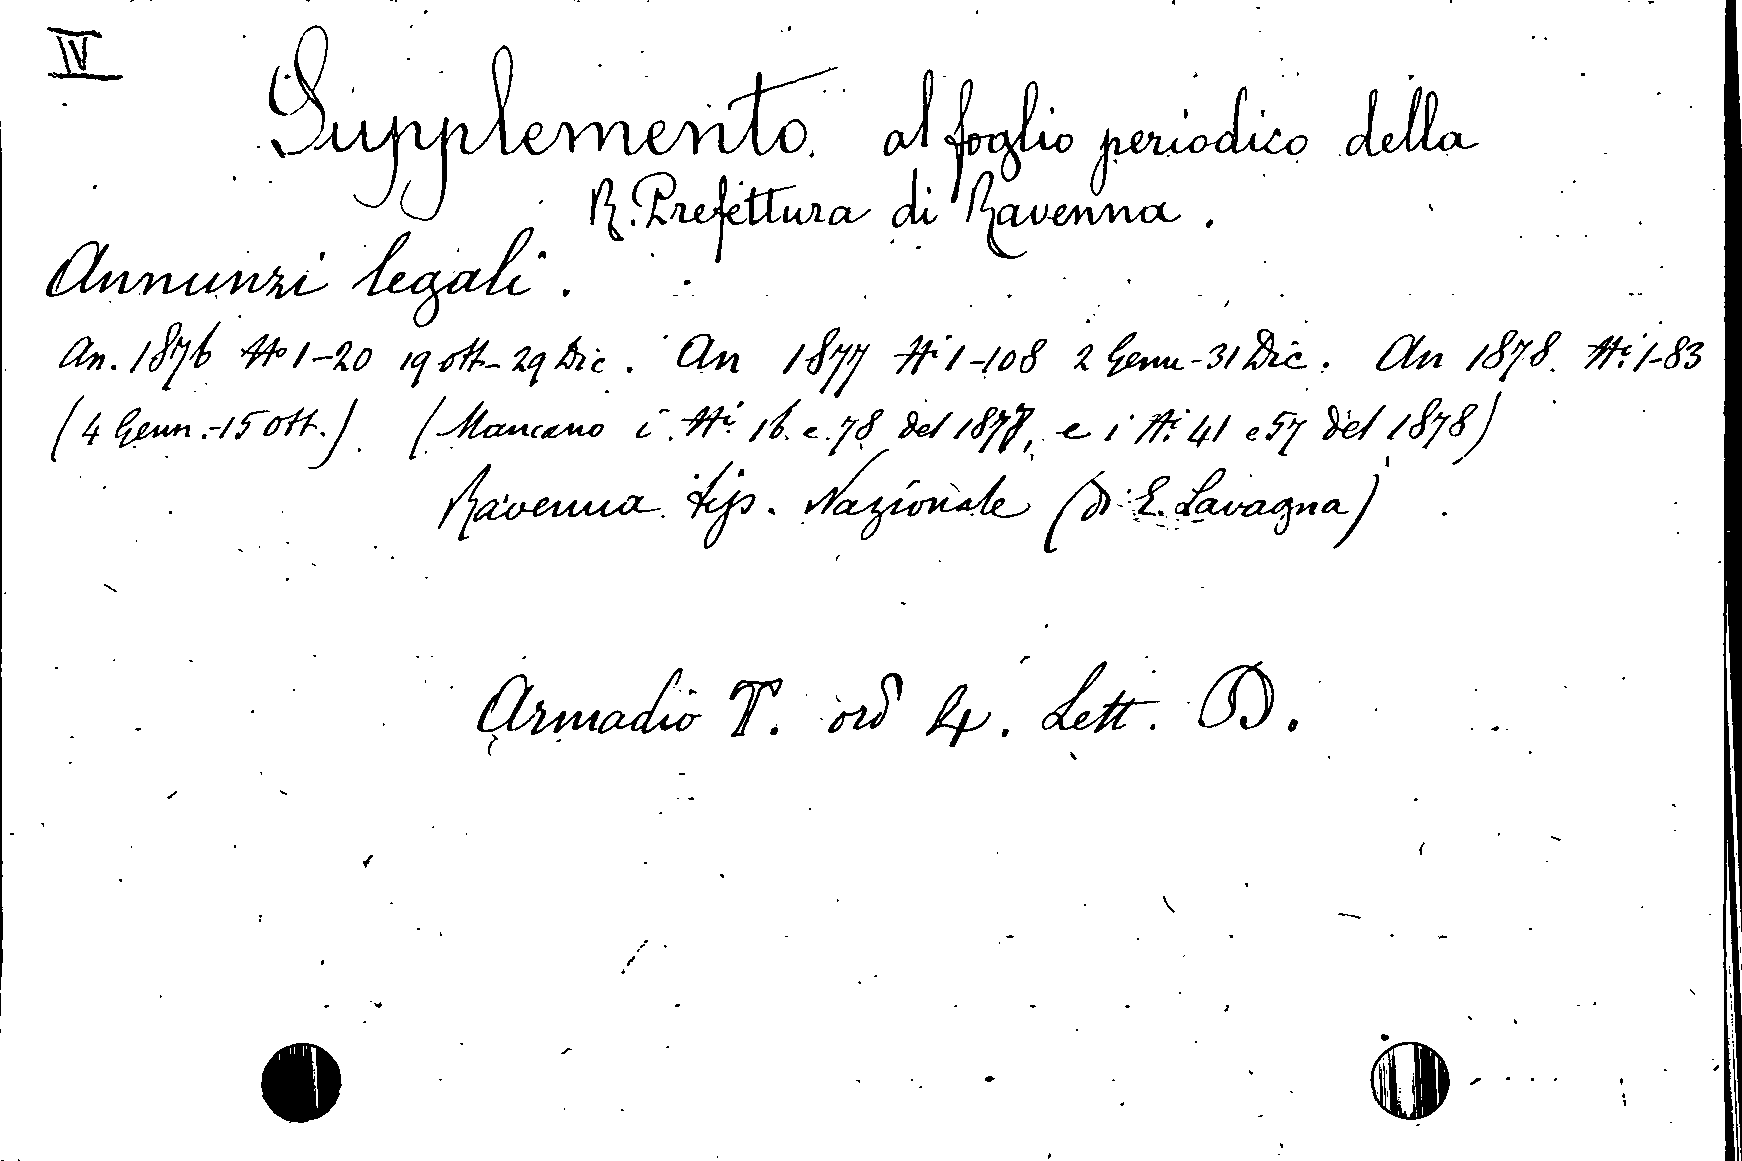 IV
Supplemento al foglio periodico della
R. Prefettura di Ravenna.
Annunzi legali.
An. 1876 No 1-20 19 ott-29 Dic. An 1877 Ni 1-108 2 Genn-31 Dic. An 1878. Ni. 1-83
(4 Genn.-15 ott.). (Mancano i Ni 16. e. 78 del 1877, e i Ni 41 e 57 del 1878)
Ravenna. tip. Nazionale (di E. Lavagna)
Armadio T. ord 4. Lett. D.